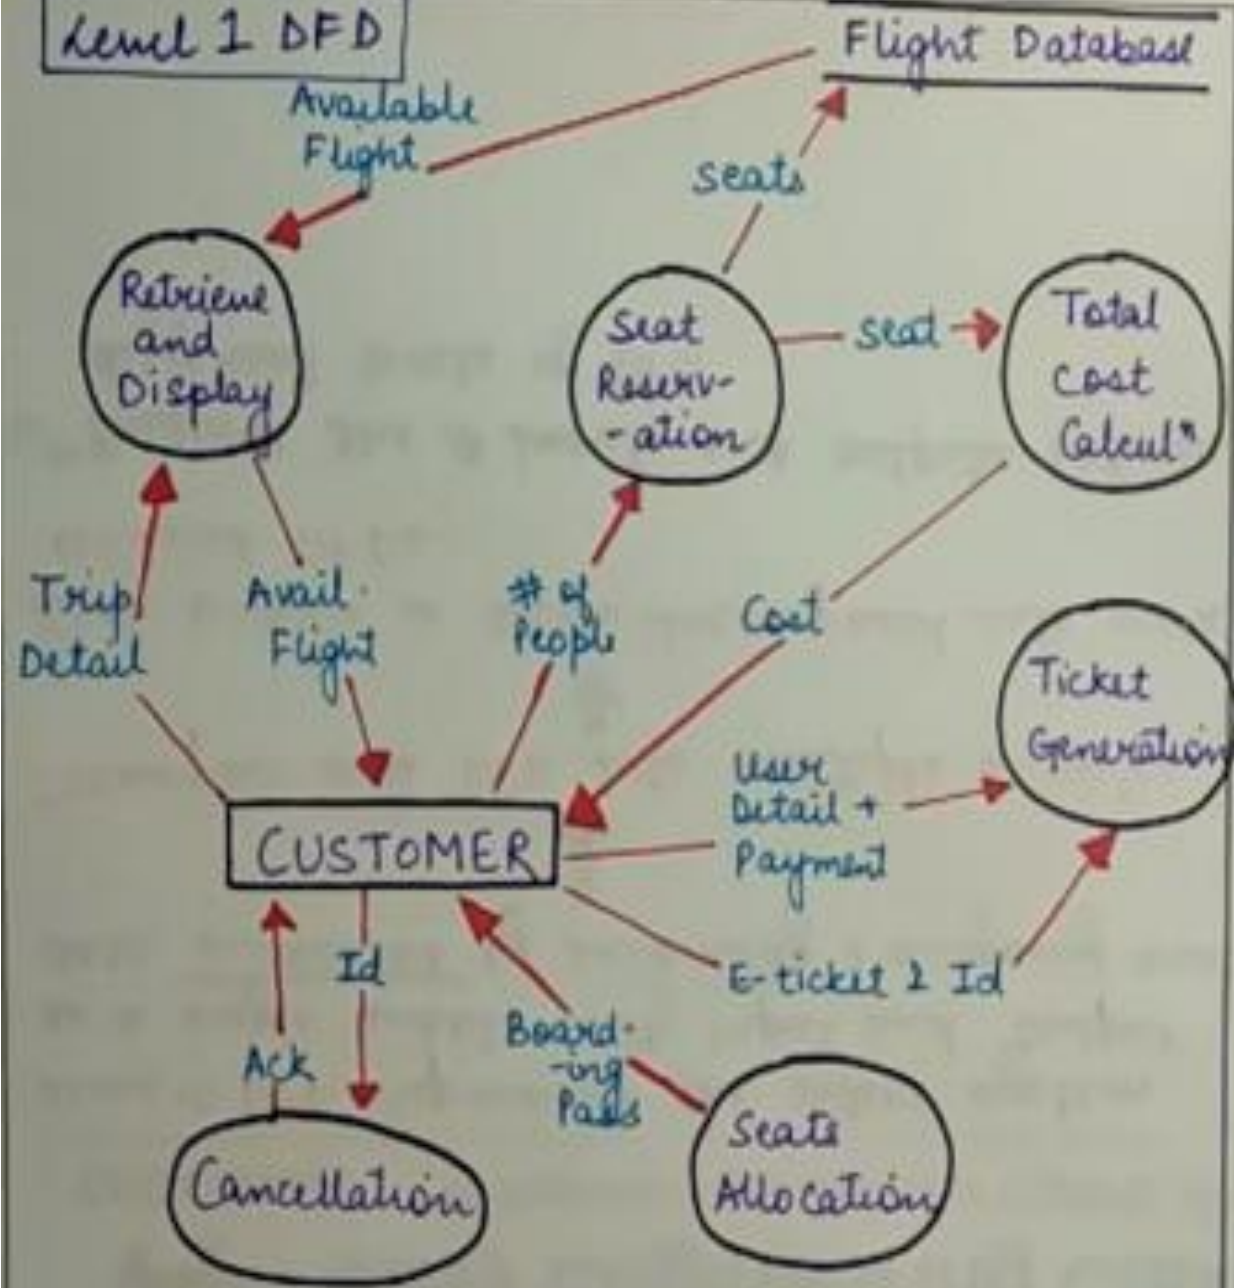 Level 1 DFD
Flight Database
Available
Flight
seats
Retrieve
and
Display
Seat
Reserv-
-ation
seat
Total
Cost
Calculⁿ
Trip
Detail
Avail.
Flight
# of
People
Cost
Ticket
Generation
User
Detail +
Payment
CUSTOMER
E-ticket & Id
Id
Ack
Board-
-ing
Pass
Cancellation
Seats
Allocation